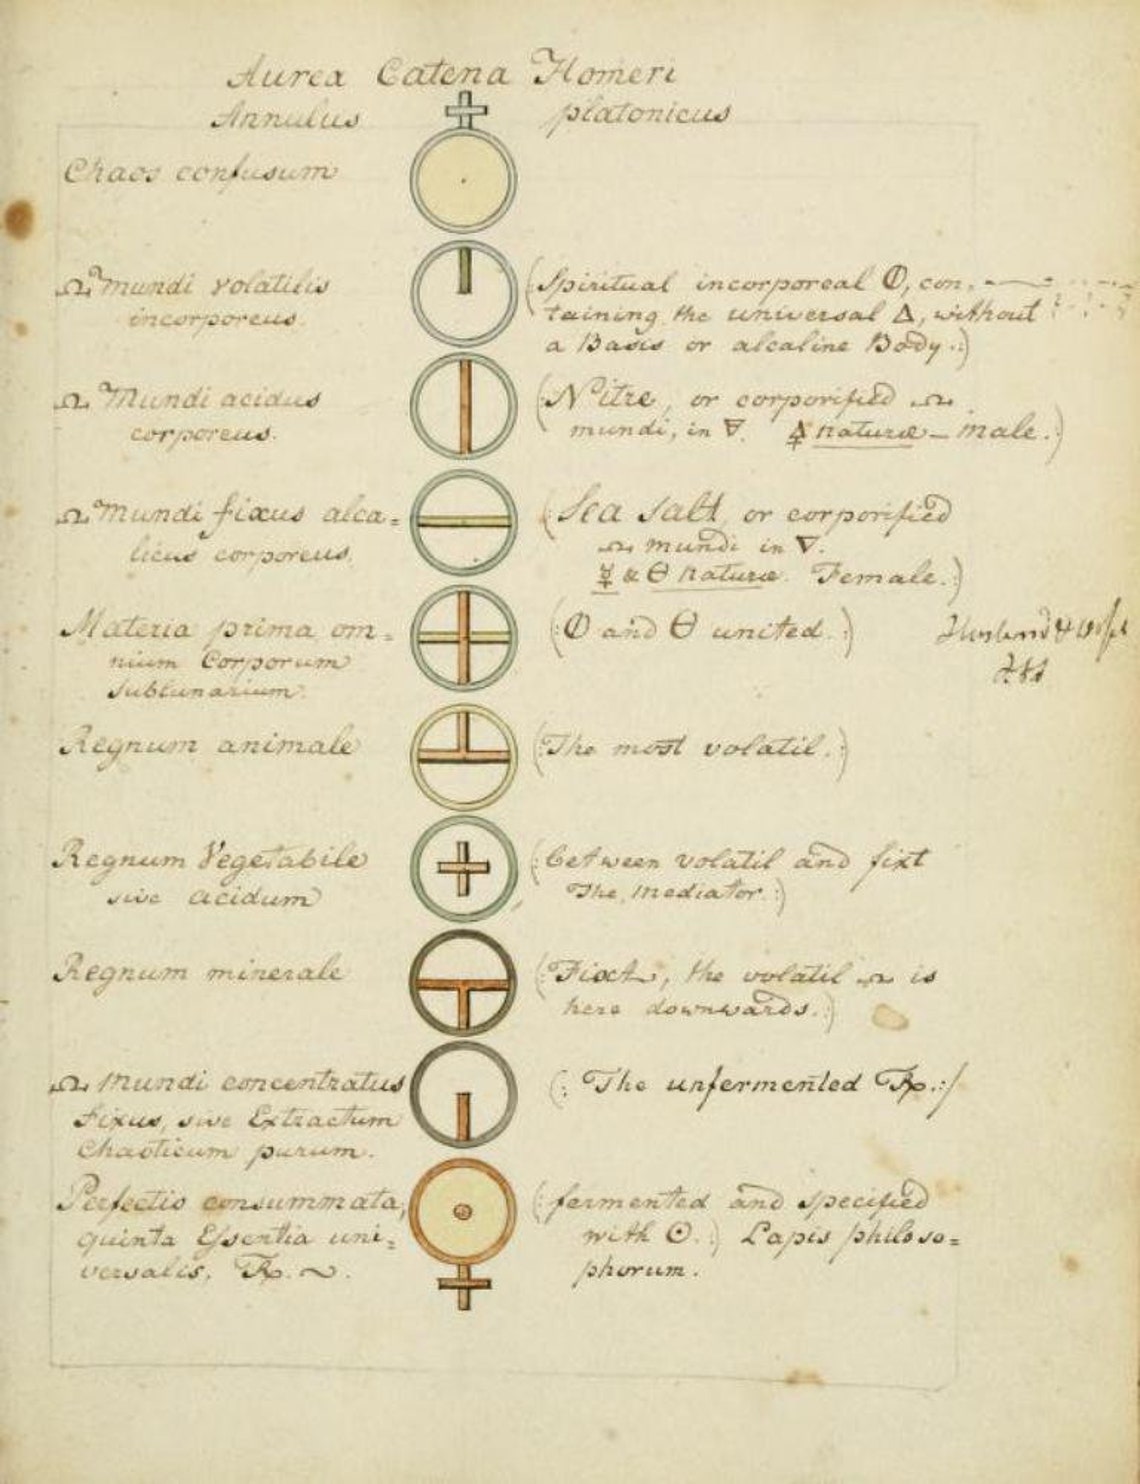 Aurea Catena Homeri
Annulus platonicus
Chaos confusum
♎ Mundi volatilis
incorporeus.
(Spiritual incorporeal 🜕, con-
taining the universal 🜂, without
a Basis or alcaline Body.:)
♎ Mundi acidus
corporeus.
(Nitre, or corporified ♎
mundi, in 🜃. 🜍 naturæ – male.:)
♎ Mundi fixus alca=
licus corporeus.
(Sea Salt, or corporified
♎ mundi in 🜄.
☿ & 🜔 naturæ. Female.:)
Materia prima om=
nium Corporum
sublunarium.
(:🜕 and 🜔 united.:)
Husband & Wife
Regnum animale
(:The most volatil.:)
Regnum Vegetabile
sive acidum
(:between volatil and fixt
The mediator.:)
Regnum minerale
(:Fixt, the volatil ♎ is
here downwards.:)
♎ Mundi concentratus
fixus, sive Extractum
Chaoticum purum.
(: The unfermented Tr.:/
Perfectio consummata,
quinta Essentia uni=
versalis. Tr. ~.
(:fermented and specified
with ☉.:) Lapis philoso=
phorum.